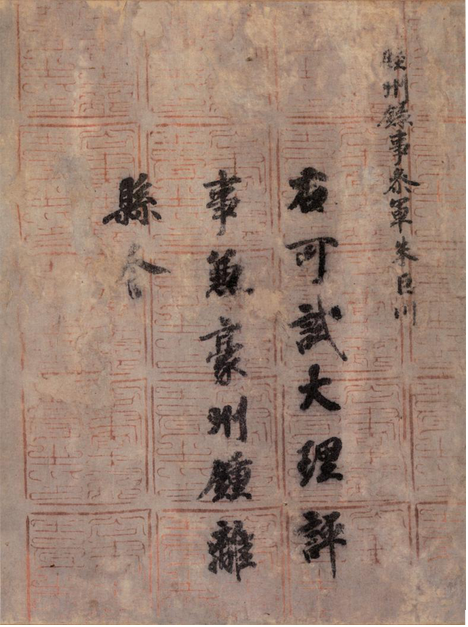 睦州錄事參軍朱巨川
右可試大理評
事兼豪州鍾離
縣令